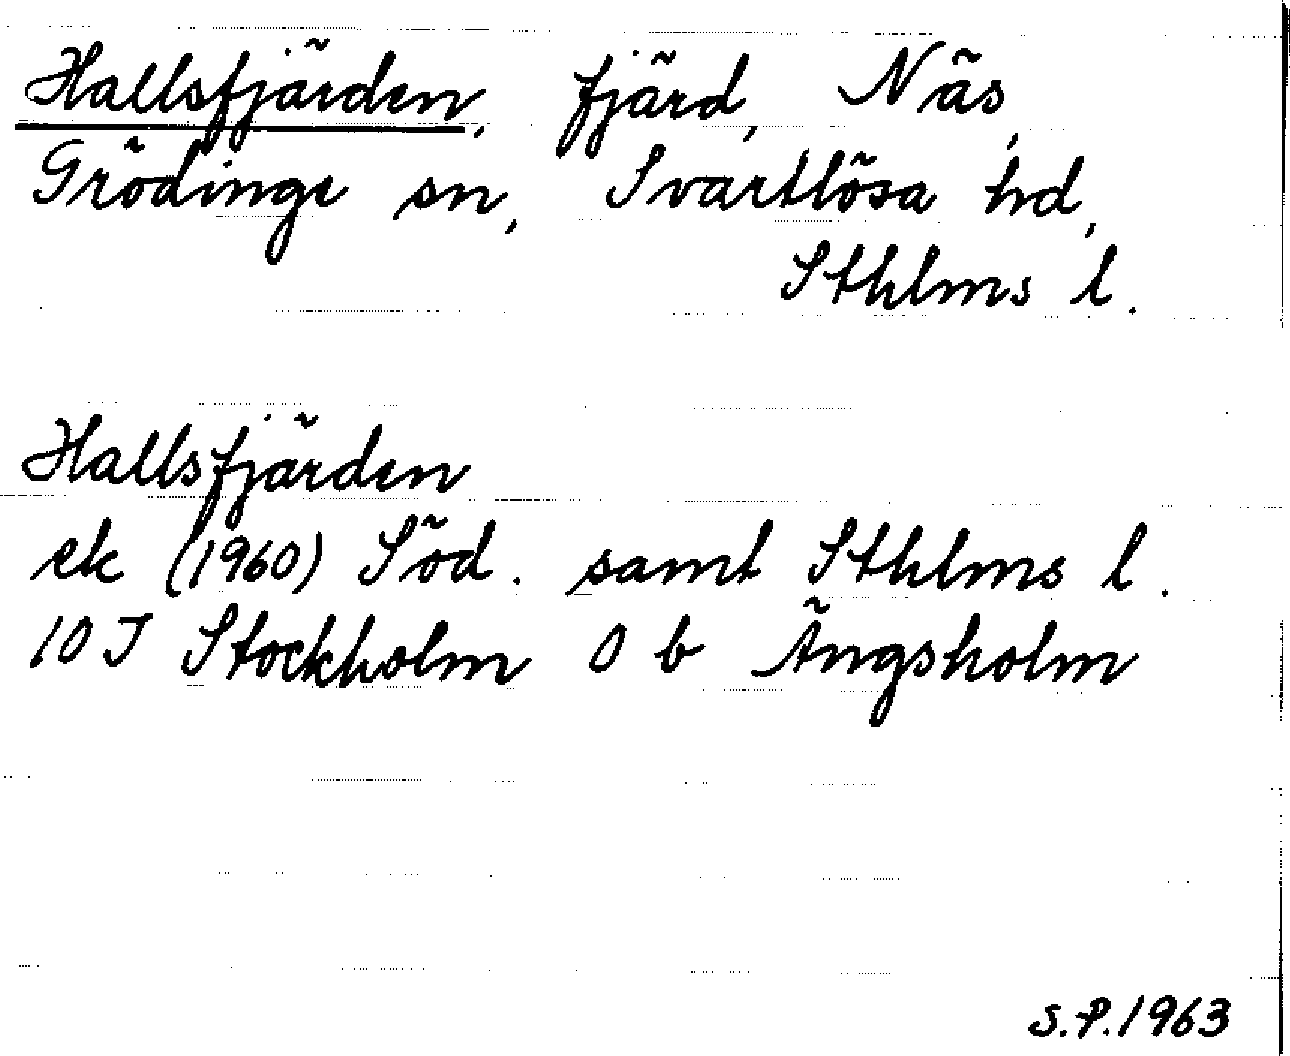 Hallsfjärden, fjärd, Näs,
Grödinge sn, Svartlösa hd,
Sthlms l.
Hallsfjärden
ek (1960) Söd. samt Sthlms l.
10 I Stockholm 0 b Ängsholm
S.P. 1963